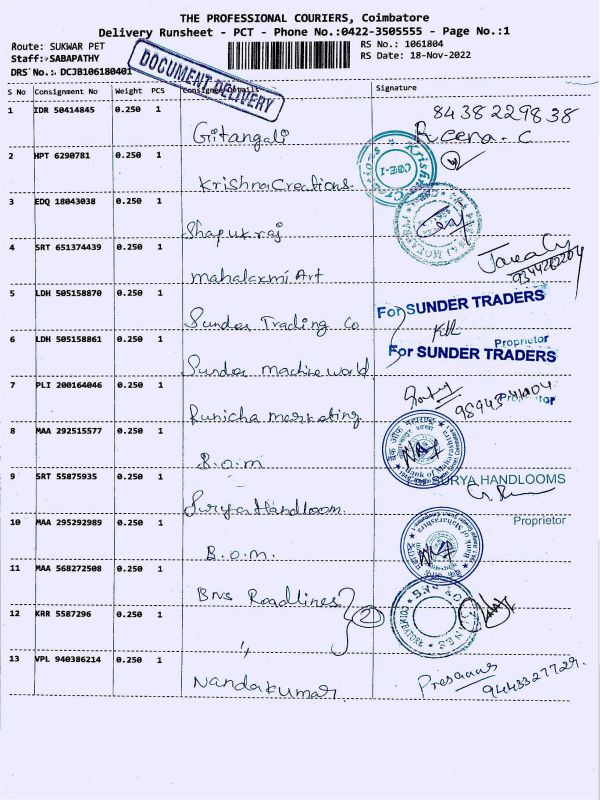 THE PROFESSIONAL COURIERS, Coimbatore
Delivery Runsheet - PCT - Phone No.:0422-3505555 - Page No.:1
Route: SUKWAR PET
RS No.: 1061804
Staff: SABAPATHY
RS Date: 18-Nov-2022
DRS No.: DCJB106180401
DOCUMENT DELIVERY
S No Consignment No Weight PCS Consignee Details Signature
1 IDR 50414845 0.250 1 Gitangali 8438229838
Reena-C
2 HPT 6290781 0.250 1 Krishna Creations
COE-1
3 EDQ 18043038 0.250 1 Shapukraj
4 SRT 651374439 0.250 1 mahalaxmi Art
5 LDH 505158870 0.250 1 Sunder Trading Co
For SUNDER TRADERS
Proprietor
6 LDH 505158861 0.250 1 Sunder machine world
For SUNDER TRADERS
7 PLI 200164046 0.250 1 Runicha marketing
8 MAA 292515577 0.250 1 B.o.m
Bank of Maharashtra
9 SRT 55875935 0.250 1 Surya Handloom
SURYA HANDLOOMS
Proprietor
10 MAA 295292989 0.250 1 B.o.m.
Bank of Maharashtra
11 MAA 568272508 0.250 1 Bns Roadlines
2
12 KRR 5587296 0.250 1 "
13 VPL 940386214 0.250 1 Nandakumar
9443327729